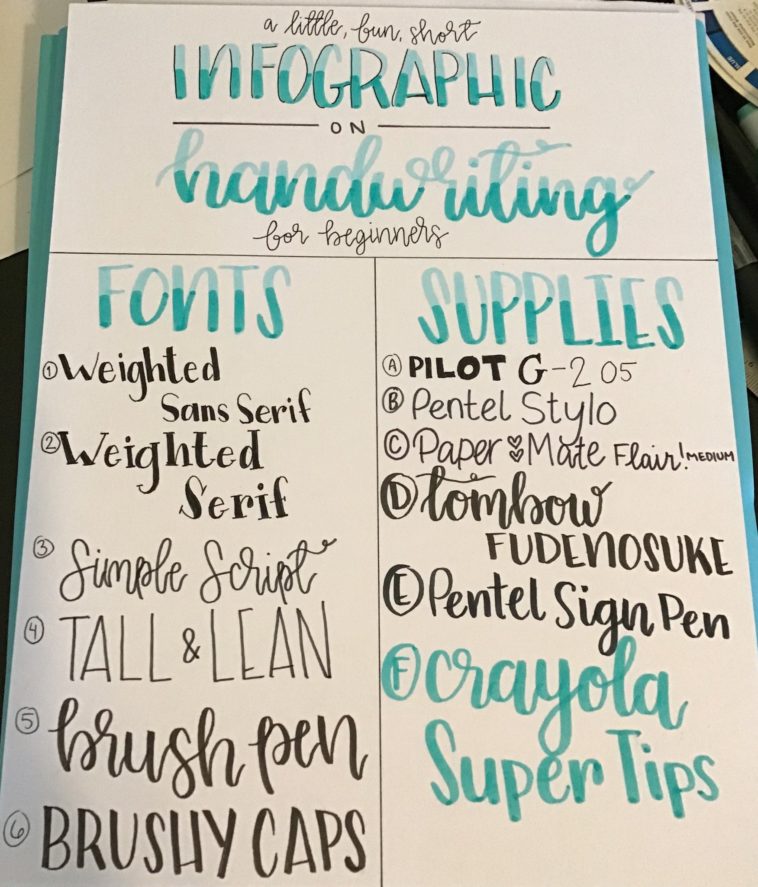 a little, fun, short
INFOGRAPHIC
ON
handwriting
for beginners
FONTS
1 Weighted
Sans Serif
2 Weighted
Serif
3 Simple Script
4 TALL & LEAN
5 brush pen
6 BRUSHY CAPS
SUPPLIES
A PILOT G-2 05
B Pentel Stylo
C Paper Mate Flair! MEDIUM
D Tombow
FUDENOSUKE
E Pentel Sign Pen
F Crayola
Super Tips
BLUE